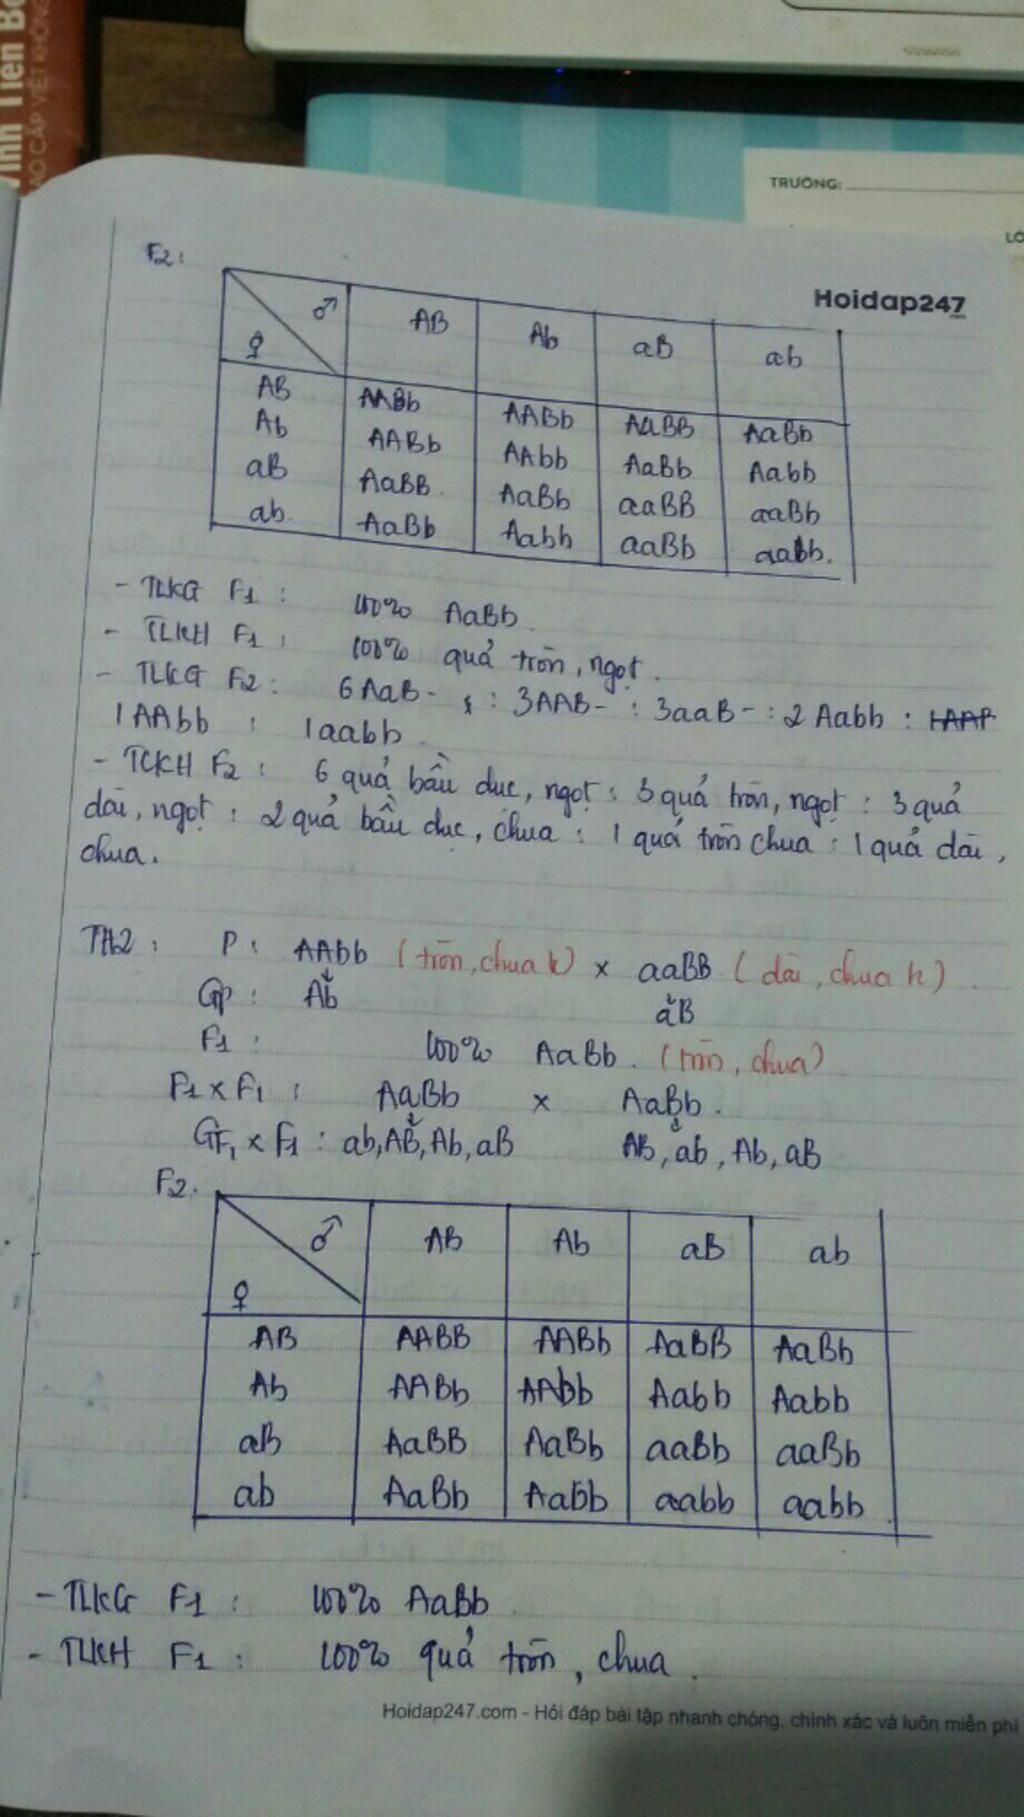 Vĩnh Tiến
AO CẤP VIẾT KHÔNG
TRƯỜNG:
F2:
Hoidap247
.com
♂ AB Ab aB ab
♀
AB AABb AABb AaBB AaBb
Ab AABb AAbb AaBb Aabb
aB AaBB AaBb aaBB aaBb
ab. AaBb Aabb aaBb aabb.
- TLKG F1 : 100% AaBb.
- TLKH F1 : 100% quả tròn, ngọt.
- TLKG F2 : 6 AaB- : 3AAB- : 3aaB- : 2 Aabb :
1 AAbb : 1aabb.
- TLKH F2 : 6 quả bầu dục, ngọt : 3 quả tròn, ngọt : 3 quả
dài, ngọt : 2 quả bầu dục, chua : 1 quả tròn chua : 1 quả dài,
chua.
TH2 : P : AAbb (tròn, chua k) x aaBB (dài, chua h).
GP : Ab aB
F1 : 100% AaBb. (tròn, chua)
F1 x F1 : AaBb x AaBb.
GF1 x F1 : ab, AB, Ab, aB AB, ab, Ab, aB
F2.
♂ AB Ab aB ab
♀
AB AABB AABb AaBB AaBb
Ab AABb AAbb Aabb Aabb
aB AaBB AaBb aaBb aaBb
ab AaBb Aabb aabb aabb
- TLKG F1 : 100% AaBb.
- TLKH F1 : 100% quả tròn, chua.
Hoidap247.com - Hỏi đáp bài tập nhanh chóng, chính xác và luôn miễn phí